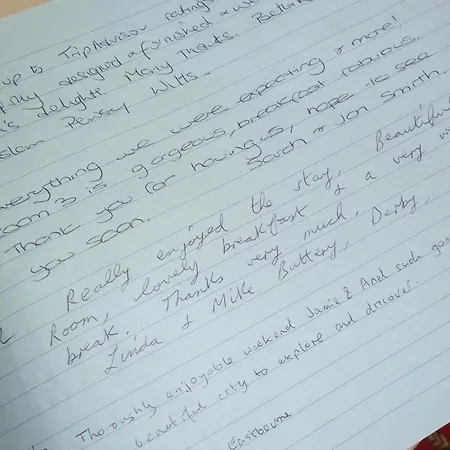 up to TripAdvisor ratings
designed & furnished & a w
's delights. Many Thanks.
Pewsey Wilts.
everything we were expecting & more!
Room 3 is gorgeous, breakfast fabulous.
Thank you for having us, hope to see
you soon. Sarah & Jon Smith.
Really enjoyed the stay, Beautiful
Room, lovely breakfast & a very w
break. Thanks very much,
Linda & Mike Buttery, Derby.
Thoroughly enjoyable weekend Jamie & And such
beautiful city to explore and discover.
Eastbourne